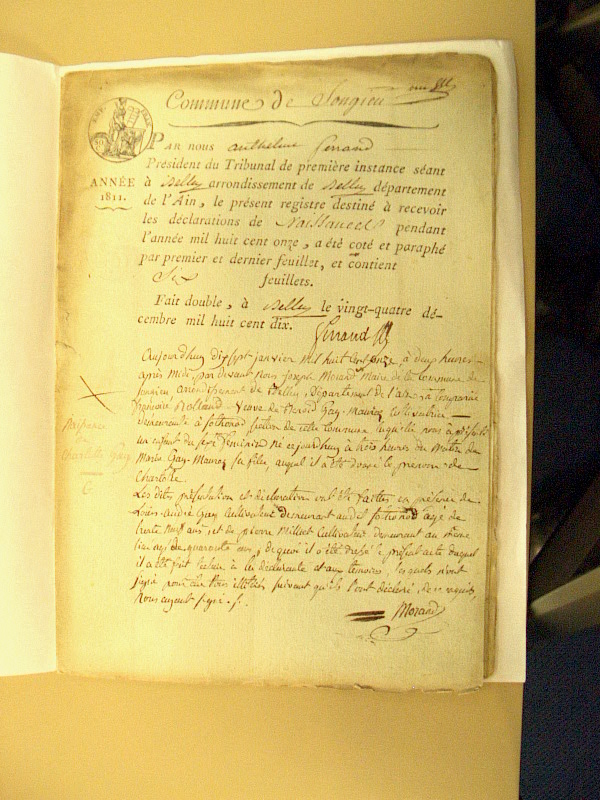 Commune de Songieu
PAR NOUS anthelme Genand
Président du Tribunal de première instance séant
ANNÉE
1811.
à Belley arrondissement de Belley département
de l'Ain, le présent registre destiné à recevoir
les déclarations de Naissances pendant
l'année mil huit cent onze, a été coté et paraphé
par premier et dernier feuillet, et contient
Six feuillets.
Fait double, à Belley le vingt-quatre dé-
cembre mil huit cent dix.
Genand
Aujourdhuy dix sept janvier mil huit cent onze, à deux heures
après midi par devant nous Joseph Morand Maire de la Commune de
Songieu arrondissement de Belley, Département de l'ain, a comparu
françoise Veuve de Benoit Gay-Maurice Cultivatrice
demeurante à sothonod section de cette Commune laquelle nous a présenté
un enfant du sexe féminine né cejourdhuy à trois heures du Matin de
Marie Gay-Mauroz sa fille, auquel il a été donné le prenom de
Charlotte
Naissance
de
Charlotte Gay
Les dites présentation et déclaration ont été faittes en présence de
Louis-André Gay Cultivateur demeurant audit sothonod agé de
trente neuf ans, et de pierre Milliet Cultivateur demeurant au même
lieu agé de quarante ans, de quoi il a été dressé le présent acte duquel
il a été fait lecture à la déclarante et aux temoins, lesquels n'ont
signé pour être tous illétrés suivant qu'ils l'ont déclaré, de ce requis,
Nous ayant signé.
Morand